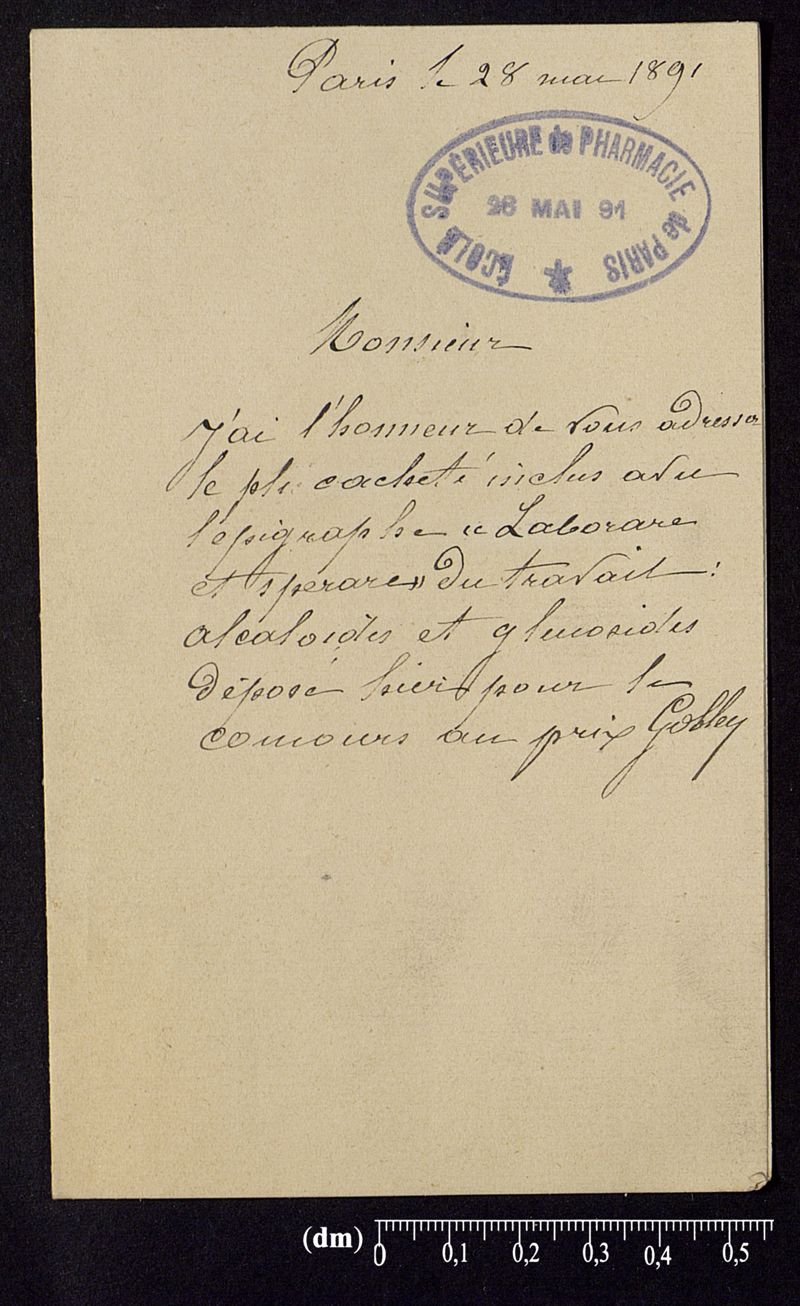 Paris le 28 mai 1891
ÉCOLE SUPÉRIEURE de PHARMACIE de PARIS
28 MAI 91
Monsieur
J'ai l'honneur de vous adresser
le pli cacheté inclus avec
l'épigraphe « Laborare
et sperare » du travail :
alcaloïdes et glucosides
déposé hier pour le
concours au prix Gobley
(dm) 0 0,1 0,2 0,3 0,4 0,5